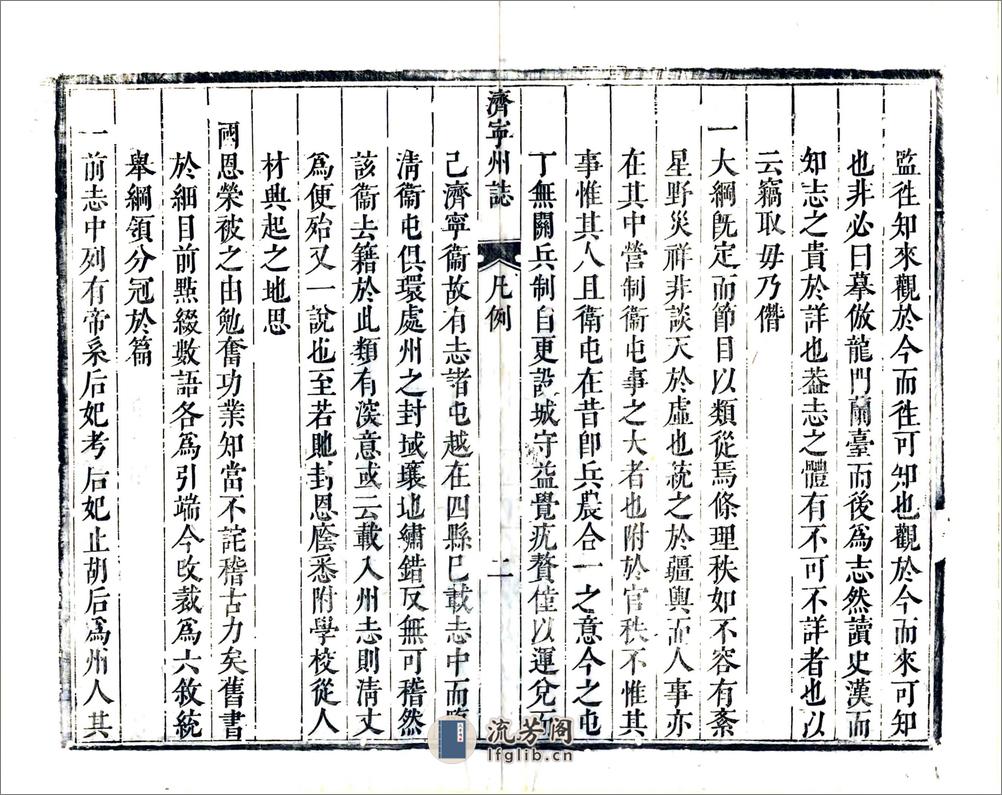 監徃知來觀於今而徃可知也觀於今而來可知
也非必曰摹倣龍門蘭臺而後爲志然讀史漢而
知志之貴於詳也葢志之體有不可不詳者也以
云竊取毋乃僭
一大綱旣定而節目以類從焉條理秩如不容有紊
星野災祥非談天於虛也統之於疆輿而人事亦
在其中營制衞屯事之大者也附於官秩不惟其
事惟其人且衛屯在昔卽兵農合一之意今之屯
丁無關兵制自更設城守益覺疣贅僅以運兌
濟寧州誌
凡例
二
己濟寧衞故有志諸屯越在四縣已載志中而
淸衞屯俱環處州之封域壤地繡錯反無可稽然
該衞去籍於此類有深意或云載入州志則淸丈
爲便殆又一說也至若貤封恩廕悉附學校從人
材興起之地思
國恩榮被之由勉奮功業知當不詫稽古力矣舊書
於細目前點綴數語各爲引端今改裁爲六敘統
舉綱領分冠於篇
一前志中列有帝系后妃考后妃止胡后爲州人其
流芳阁
lfglib.cn